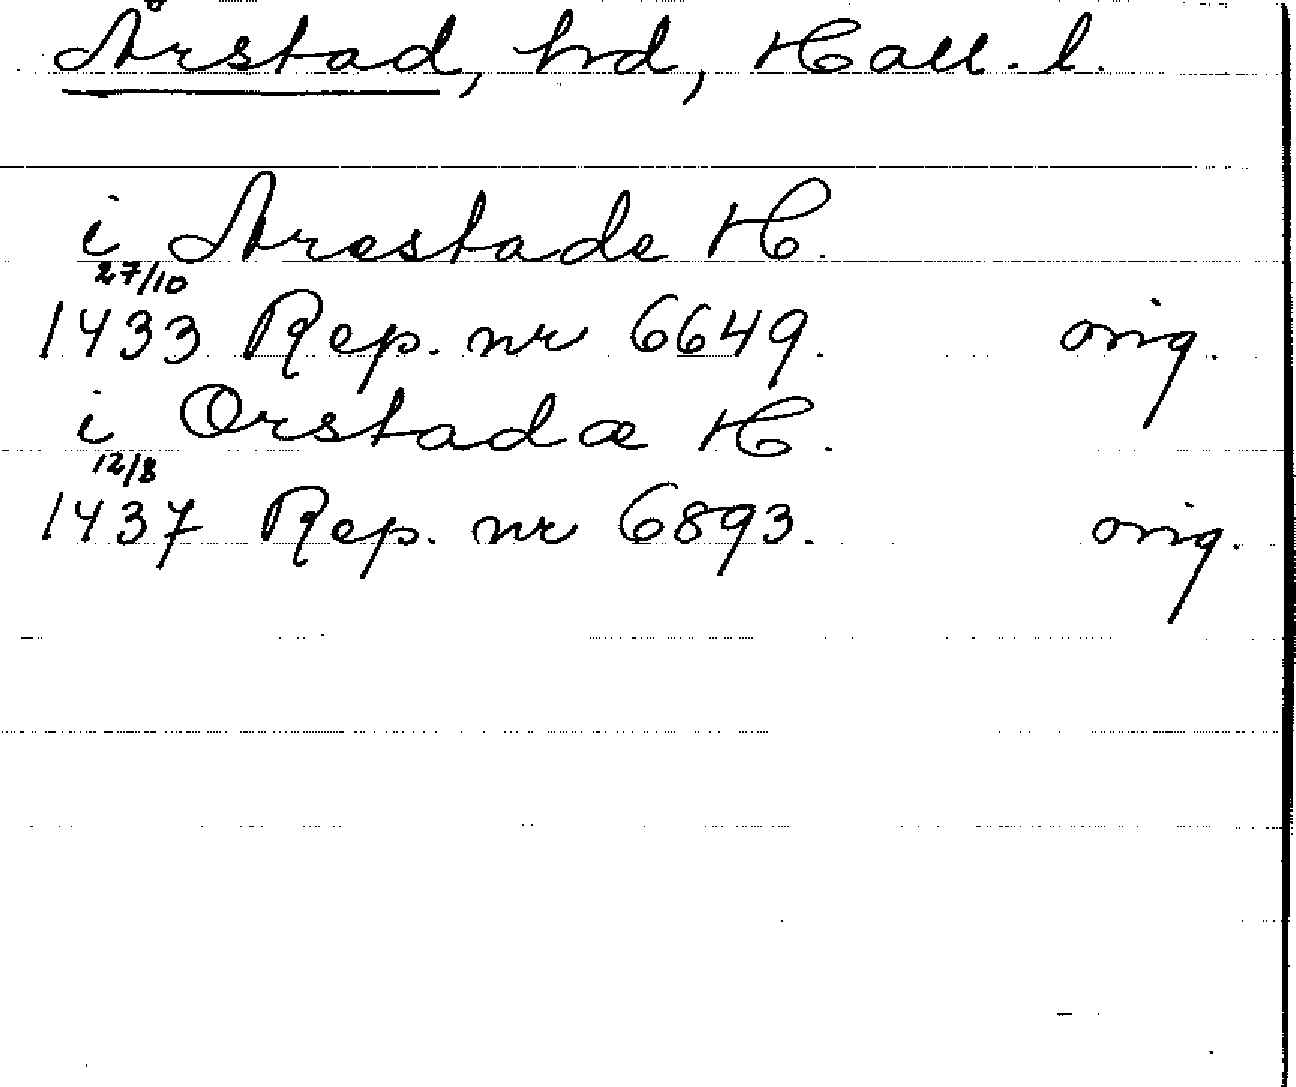 Årstad, hd, Hall. l.
i Arestade H.
27/10
1433 Rep. nr 6649. orig.
i Orstadæ H.
12/8
1437 Rep. nr 6893. orig.